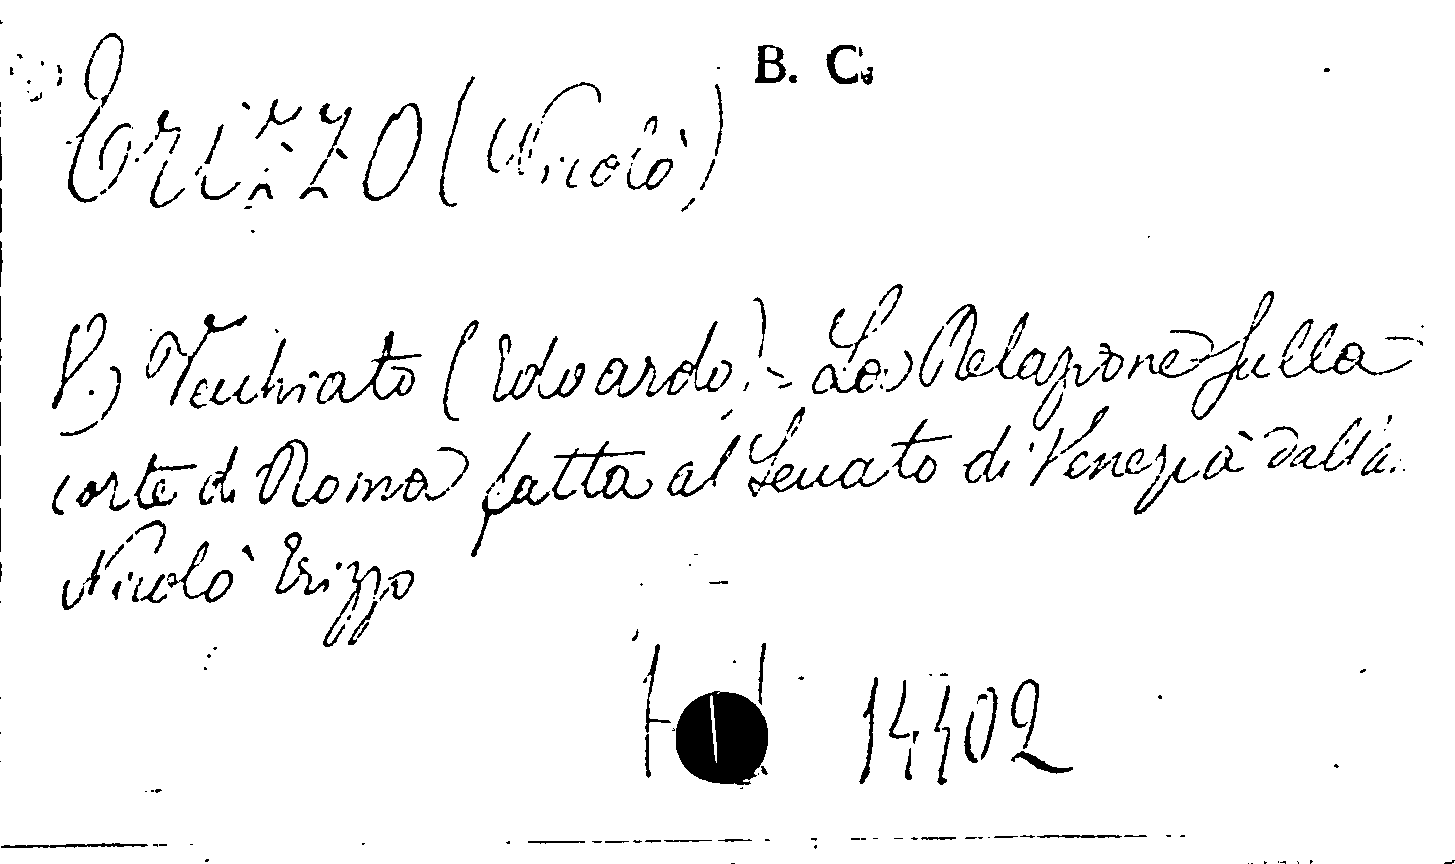 B. C.
Erizzo (Nicolò)
V.) Vecchiato (Edoardo) - La Relazione sulla
corte di Roma fatta al Senato di Venezia dall'a.
Nicolò Erizzo
H 14402